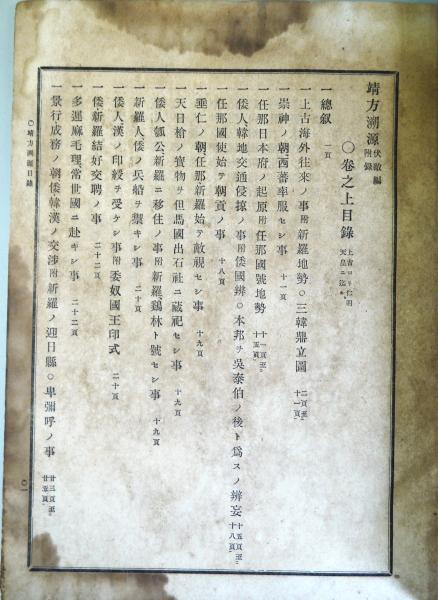 靖方溯源 伏敵編附錄
○卷之上目錄
一總叙 一頁
一上古海外往來ノ事附新羅地勢○三韓鼎立圖 二頁至十一頁
一崇神ノ朝西蕃率服セシ事 十一頁
一任那日本府ノ起原附任那國號地勢 十一頁至十五頁
一倭人、韓地交通侵掠ノ事附倭國辨○本邦ヲ吳泰伯ノ後ト爲スノ辨妄 十五頁至十八頁
一任那國使始テ朝貢ノ事 十八頁
一垂仁ノ朝任那新羅始テ敵視セシ事 十九頁
一天日槍ノ寶物ヲ但馬國出石社ニ藏祀セシ事 十九頁
一倭人瓠公新羅ニ移住ノ事附新羅、鷄林ト號セシ事 十九頁
一新羅人倭ノ兵船ヲ禦キシ事 二十頁
一倭人漢ノ印綬ヲ受ケシ事附委奴國王印式 二十頁
一倭、新羅結好交聘ノ事 二十二頁
一多遲麻毛理常世國ニ赴キシ事 二十二頁
一景行成務ノ朝倭韓漢ノ交渉附新羅ノ迎日縣○卑彌呼ノ事 廿三頁至廿五頁
○靖方溯源目錄
○一